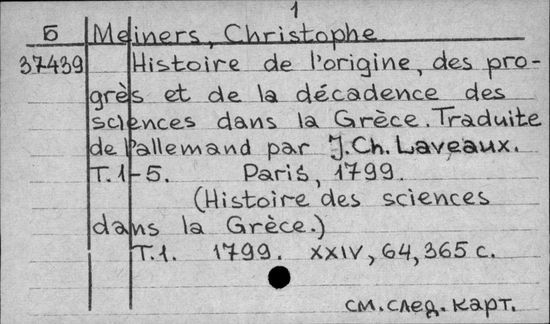 1
Б Meiners, Christophe
37439 Histoire de l'origine, des pro-
grès et de la décadence des
sciences dans la Grèce. Traduite
de l'allemand par J.Ch. Laveaux.
T.1-5. Paris, 1799.
(Histoire des sciences
dans la Grèce.)
T.1. 1799. XXIV, 64, 365 с.
см. след. карт.